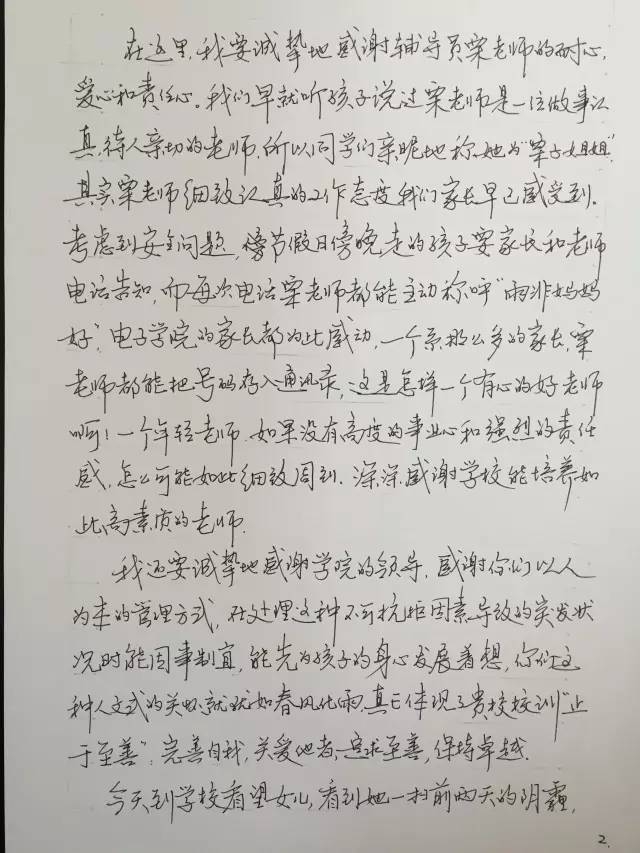 在这里,我要诚挚地感谢辅导员栗老师的耐心,
爱心和责任心。我们早就听孩子说过栗老师是一位做事认
真,待人亲切的老师.所以同学们亲昵地称她为"栗子姐姐".
其实栗老师细致认真的工作态度我们家长早已感受到.
考虑到安全问题,傍节假日傍晚走的孩子要家长和老师
电话告知,而每次电话栗老师都能主动称呼"雨非妈妈
好",电子学院的家长都为此感动,一个系那么多的家长,栗
老师都能把号码存入通讯录,这是怎样一个有心的好老师
啊!一个年轻老师.如果没有高度的事业心和强烈的责任
感,怎么可能如此细致周到.深深感谢学校能培养如
此高素质的老师.
我还要诚挚地感谢学院的领导,感谢你们以人
为本的管理方式,在处理这种不可抗拒因素导致的突发状
况时能因事制宜,能先为孩子的身心发展着想,你们这
种人文式的关怀就犹如春风化雨.真正体现了贵校校训"止
于至善",完善自我,关爱他者,追求至善,保持卓越.
今天到学校看望女儿,看到她一扫前两天的阴霾,
2.